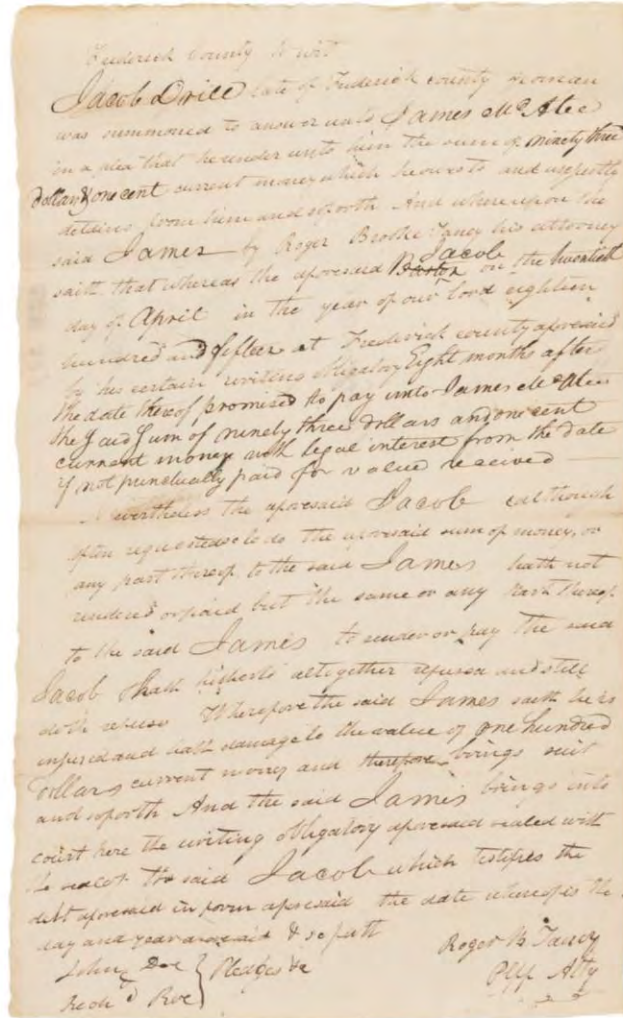 Frederick County to wit
Jacob Drill late of Frederick county yeoman
was summoned to answer unto James McAlee
in a plea that he render unto him the sum of ninety three
dollars & one cent current money which he owes to and unjustly
detains from him and soforth And whereupon the
said James by Roger Brooke Taney his attorney
saith that whereas the aforesaid Jacob on the twentieth
day of April in the year of our lord eighteen
hundred and fifteen at Frederick county aforesaid
by his certain writing obligatory Eight months after
the date thereof, promised to pay unto James McAlee
the said sum of ninety three dollars and one cent
current money with legal interest from the date
if not punctually paid for value received
Nevertheless the aforesaid Jacob (although
often requested so to do the aforesaid sum of money, or
any part thereof to the said James hath not
rendered or paid but the same or any part thereof
to the said James to render or pay the said
Jacob hath hitherto altogether refused and still
doth refuse Wherefore the said James saith he is
injured and hath damage to the value of one hundred
dollars current money and therefore brings suit
and soforth And the said James brings into
court here the writing obligatory aforesaid sealed with
the seal of the said Jacob which testifies the
debt aforesaid in form aforesaid the date whereof is the
day and year aforesaid & so forth
Roger B Taney
Plff Atty
John Doe } Pledges &c
Rich'd Roe